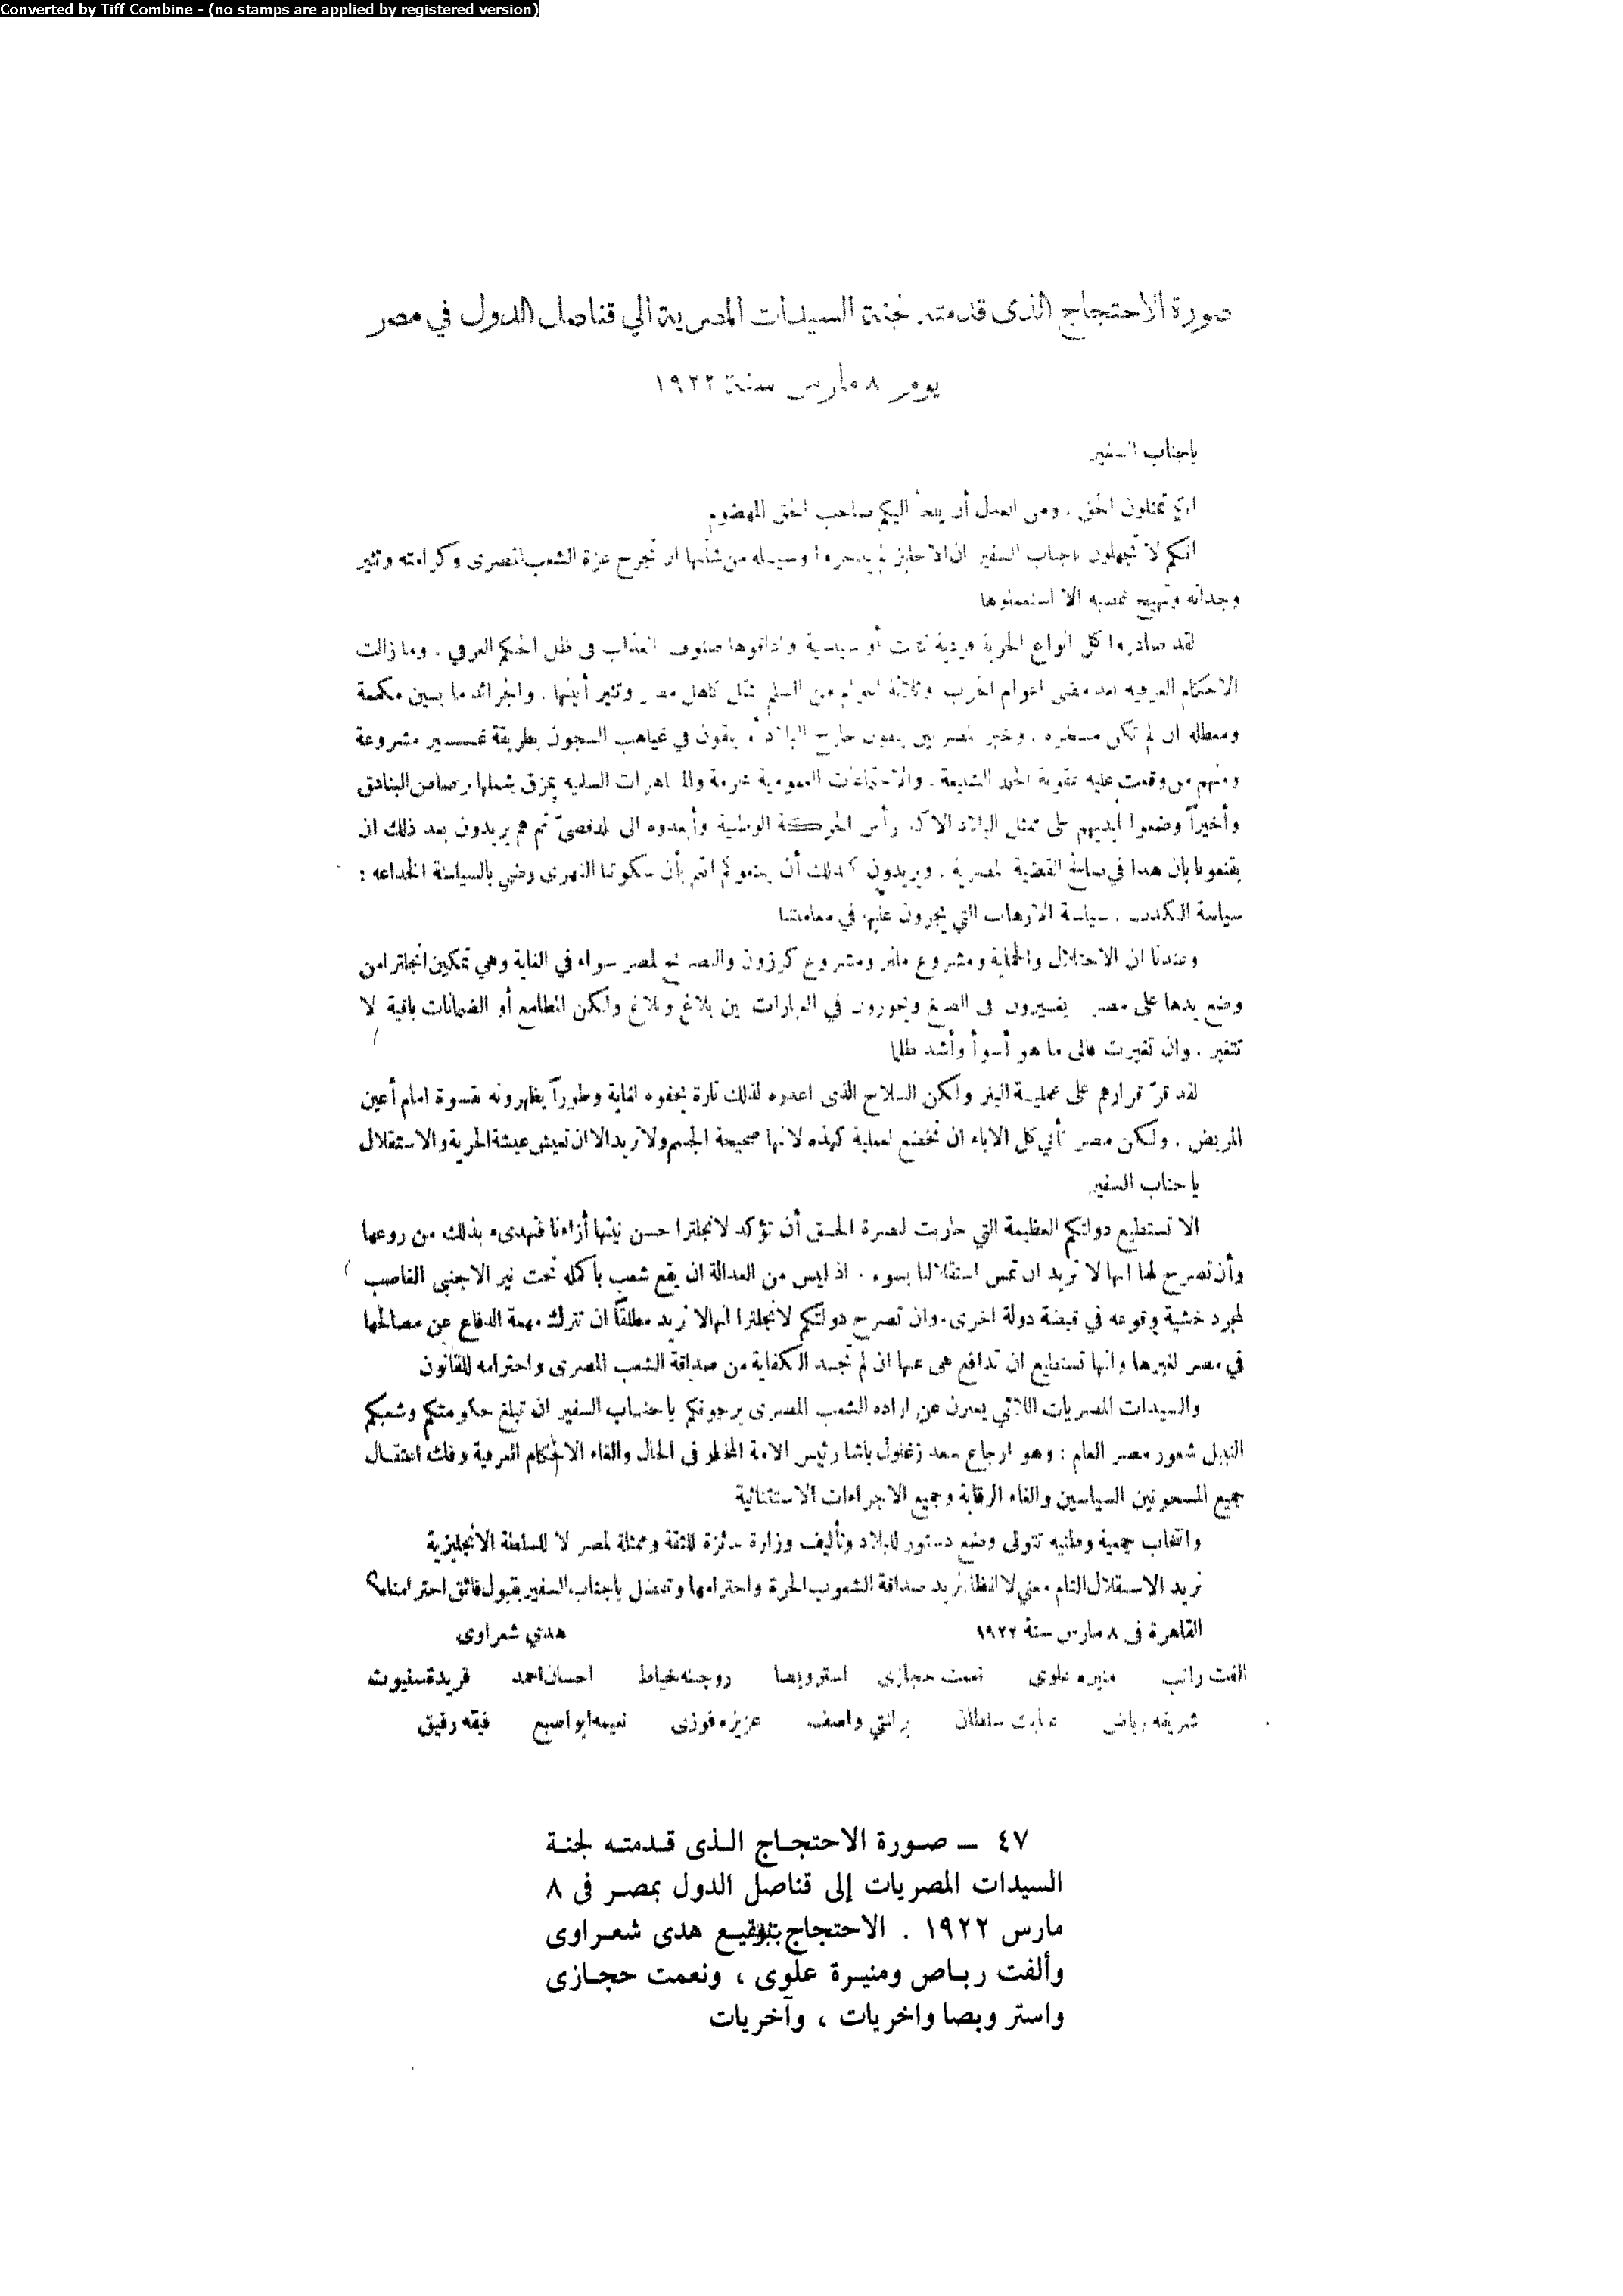 Converted by Tiff Combine - (no stamps are applied by registered version)
صورة الاحتجاج الذى قدمته لجنة السيدات المصرية الي قناصل الدول في مصر
يوم ٨ مارس سنة ١٩٢٢
ياجناب السفير
انكم تمثلون الحق . ومن العدل أن يلجأ اليكم صاحب الحق المهضوم
انكم لا تجهلون ياجناب السفير ان الانجليز لم وسيلة من شأنها ان تجرح عزة الشعب المصرى وكرامته وتثير
وجدانه وتهيج الا استعملوها
لقد صادروا كل انواع الحرية فردية كانت أو سياسية واذاقوها صنوف العذاب فى ظل الحكم العرفي . وما زالت
الاحكام العرفيه بعد مضى اعوام الحرب وثلاثة اعوام من السلم تثقل كاهل مصر وتثير أنينها . والجرائد ما بين مكممة
ومعطله ان لم تكن مسخره . وخير المصريين خارج البلاد أو يلقون في غياهب السجون بطريقة غير مشروعة
ومنهم من وقعت عليه عقوبة الجلد الشنيعة . والاجتماعات العمومية محرمة والمظاهرات السلميه يمزق شملها رصاص البنادق
وأخيراً وضعوا أيديهم على ممثل البلاد الاكبر رأس الحركة الوطنية وأبعدوه الى المنفى ثم هم يريدون بعد ذلك ان
يقنعونا بان هذا في صالح القضية المصرية . ويريدون كذلك أن أنتم بأن سكوتنا القهرى رضي بالسياسة الخداعه :
سياسة الكذب . سياسة الارهاب التي يجرون عليها في معاملتنا
وعندنا ان الاحتلال والحماية ومشروع ملنر ومشروع كرزون والتصريح لمصر سواء في الغاية وهي تمكين انجلترا من
وضع يدها على مصر يغيرون فى الصيغ ويحورون في العبارات بين بلاغ وبلاغ ولكن المطامع أو الضمانات باقية لا
تتغير . وان تغيرت فالى ما هو أسوأ وأشد ظلما
لقد قرّ قرارهم على عملية البتر ولكن السلاح الذى اعدوه لذلك تارة يخفوه لغاية وطوراً يظهرونه بقسوة امام أعين
المريض . ولكن مصر تأبي كل الاباء ان تخضع لعملية كهذه لانها صحيحة الجسم ولا تريد الا ان تعيش عيشة الحرية والاستقلال
يا جناب السفير
الا تستطيع دولتكم العظيمة التي حاربت لنصرة الحق أن تؤكد لانجلترا حسن نيتها أزاءنا فتهدىء بذلك من روعها
وأن تصرح لها انها لا تريد ان تمس استقلالنا بسوء . اذ ليس من العدالة ان يقع شعب بأكمله تحت نير الاجنبى الغاصب
لمجرد خشية وقوعه في قبضة دولة اخرى . وان تصرح دولتكم لانجلترا انها لا تريد مطلقاً ان تترك مهمة الدفاع عن مصالحها
في مصر لغيرها وانها تستطيع ان تدافع هى عنها ان لم تجد الكفاية من صداقة الشعب المصرى واحترامه للقانون
والسيدات المصريات اللاتي يعبرن عن اراده الشعب المصرى يرجونكم ياجناب السفير ان تبلغ حكومتكم وشعبكم
النبيل شعور مصر العام : وهو ارجاع سعد زغلول باشا رئيس الامة المخلص فى الحال والغاء الاحكام العرفية وفك اعتقال
جميع المسجونين السياسين والغاء الرقابة وجميع الاجراءات الاستثنائية
وانتخاب جمعية وطنيه تتولى وضع دستور للبلاد وتأليف وزارة حائزة للثقة وممثلة لمصر لا للسلطة الانجليزية
نريد الاستقلال التام معني لا لفظا نريد صداقة الشعوب الحرة واحترامها وتفضل ياجناب السفير بقبول فائق احترامنا
القاهرة فى ٨ مارس سنة ١٩٢٢ هدي شعراوى
الفت راتب منيره علوى نعمت حجازى استر ويصا روجينه خياط احسان احمد فريدة سنيوت
شريفه رياض عنايت سلطان برلنتي واصف عزيزه فوزى نعيمه ابو اصبع فيقه رفيق
٤٧ ــ صورة الاحتجاج الذى قدمته لجنة
السيدات المصريات إلى قناصل الدول بمصر فى ٨
مارس ١٩٢٢ . الاحتجاج بتوقيع هدى شعراوى
وألفت رباص ومنيرة علوى ، ونعمت حجازى
واستر وبصا واخريات ، وآخريات